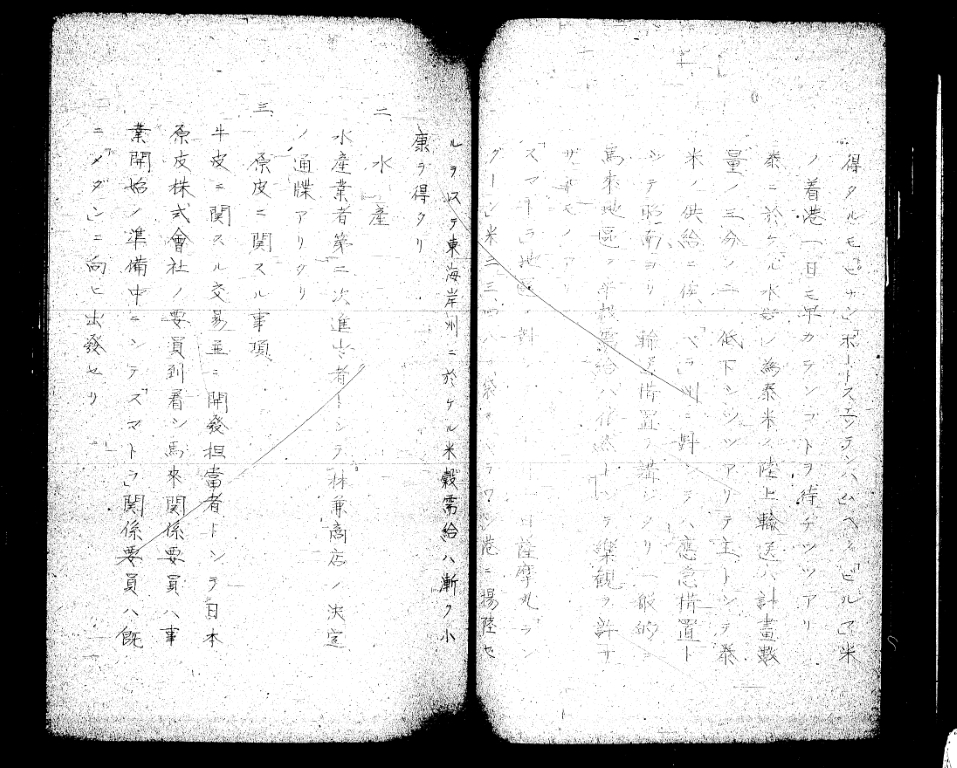 得タルモピナン、ポートスエツテンハムヘノビルマ米
ノ着港一日モ早カランコトヲ待チツツアリ
泰ニ於ケル水害ノ為泰米ノ陸上輸送ハ計畫数
量ノ三分ノ二ニ低下シツツアリテ主トシテ泰
米ノ供給ニ依ル「ペラ」州ニ對シテハ應急措置ト
シテ昭南ヨリ輸送措置ヲ講ジタリ一般的ニ
馬來地區ノ米穀需給ハ依然トシテ樂観ヲ許サ
ザルモノアリ
「スマトラ」地區ニ對 薩摩丸「ラン
グーン」米 袋ヲベラワン港ニ揚陸セ
ルヲ以テ東海岸州ニ於ケル米穀需給ハ漸ク小
康ヲ得タリ
二、水産
水産業者第二次進出者トシテ林兼商店ノ決定
ノ通牒アリタリ
三、原皮ニ関スル事項
牛皮ニ関スル交易並ニ開發担當者トシテ日本
原皮株式會社ノ要員到着シ馬來関係要員ハ事
業開始ノ準備中ニシテ「スマトラ」関係要員ハ既
ニ「メダン」ニ向ヒ出發セリ